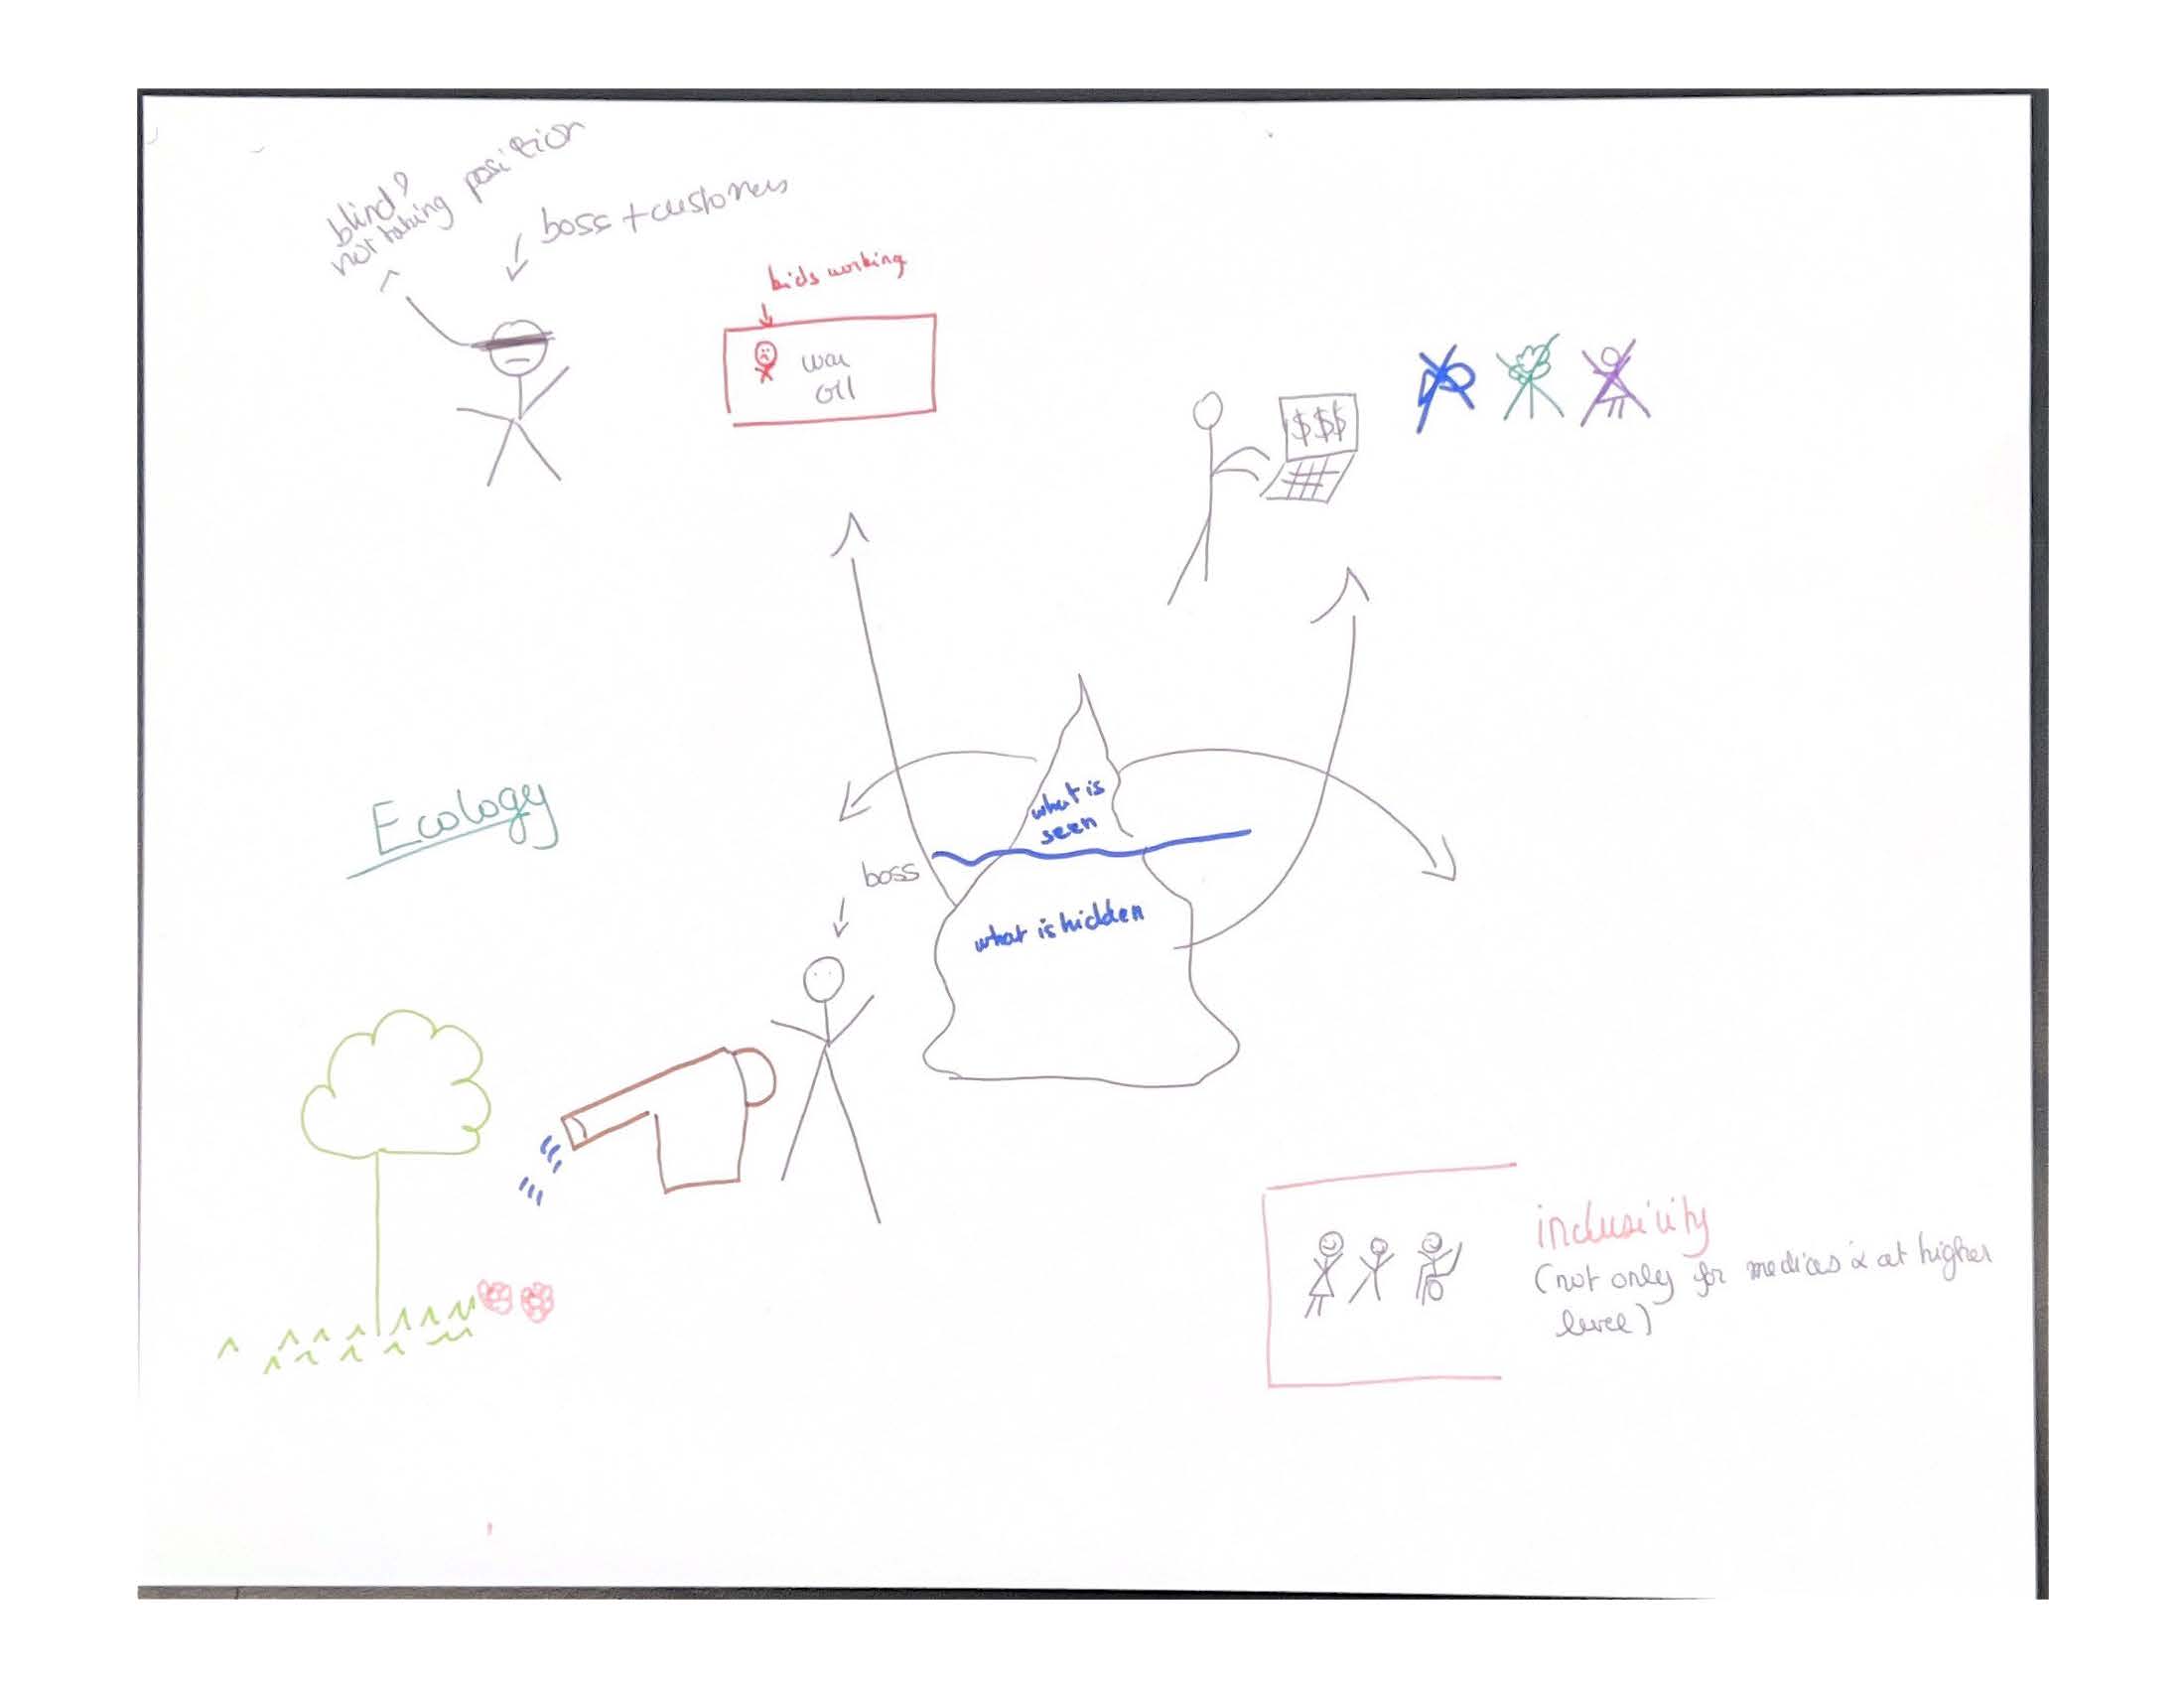 blind?
not taking position
boss + customers
kids working
war
oil
$$$
Ecology
what is
seen
boss
what is hidden
inclusivity
(not only for medias & at higher
level)